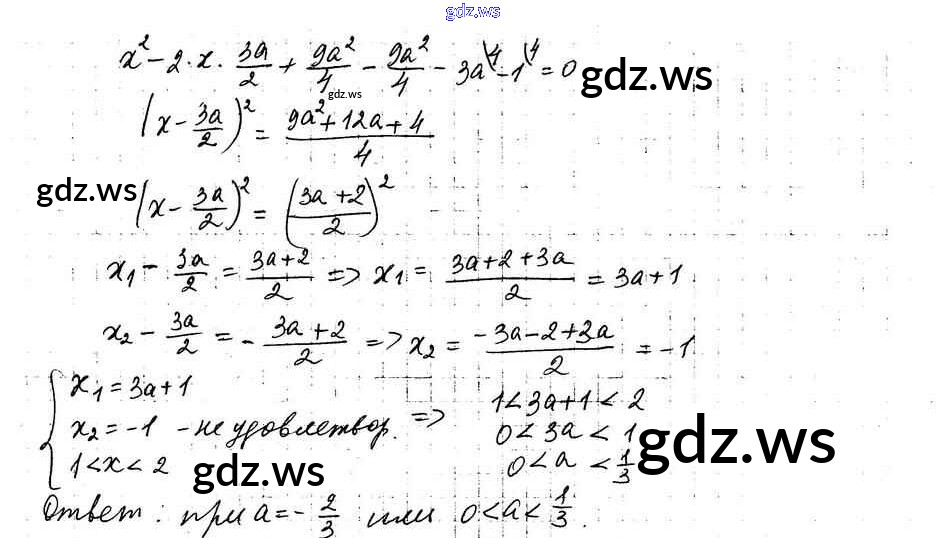 gdz.ws
x² - 2·x·3a/2 + 9a²/4 - 9a²/4 - 3a\4 - 1\4 = 0 gdz.ws
gdz.ws
(x - 3a/2)² = (9a² + 12a + 4)/4
gdz.ws (x - 3a/2)² = ((3a + 2)/2)²
x₁ - 3a/2 = (3a + 2)/2 => x₁ = (3a + 2 + 3a)/2 = 3a + 1
x₂ - 3a/2 = - (3a + 2)/2 => x₂ = (-3a - 2 + 3a)/2 = -1
{ x₁ = 3a + 1 1 < 3a + 1 < 2
x₂ = -1 - не удовлетвор. => 0 < 3a < 1
1 < x < 2 0 < a < 1/3
gdz.ws gdz.ws
Ответ: при a = - 2/3 или 0 < a < 1/3.